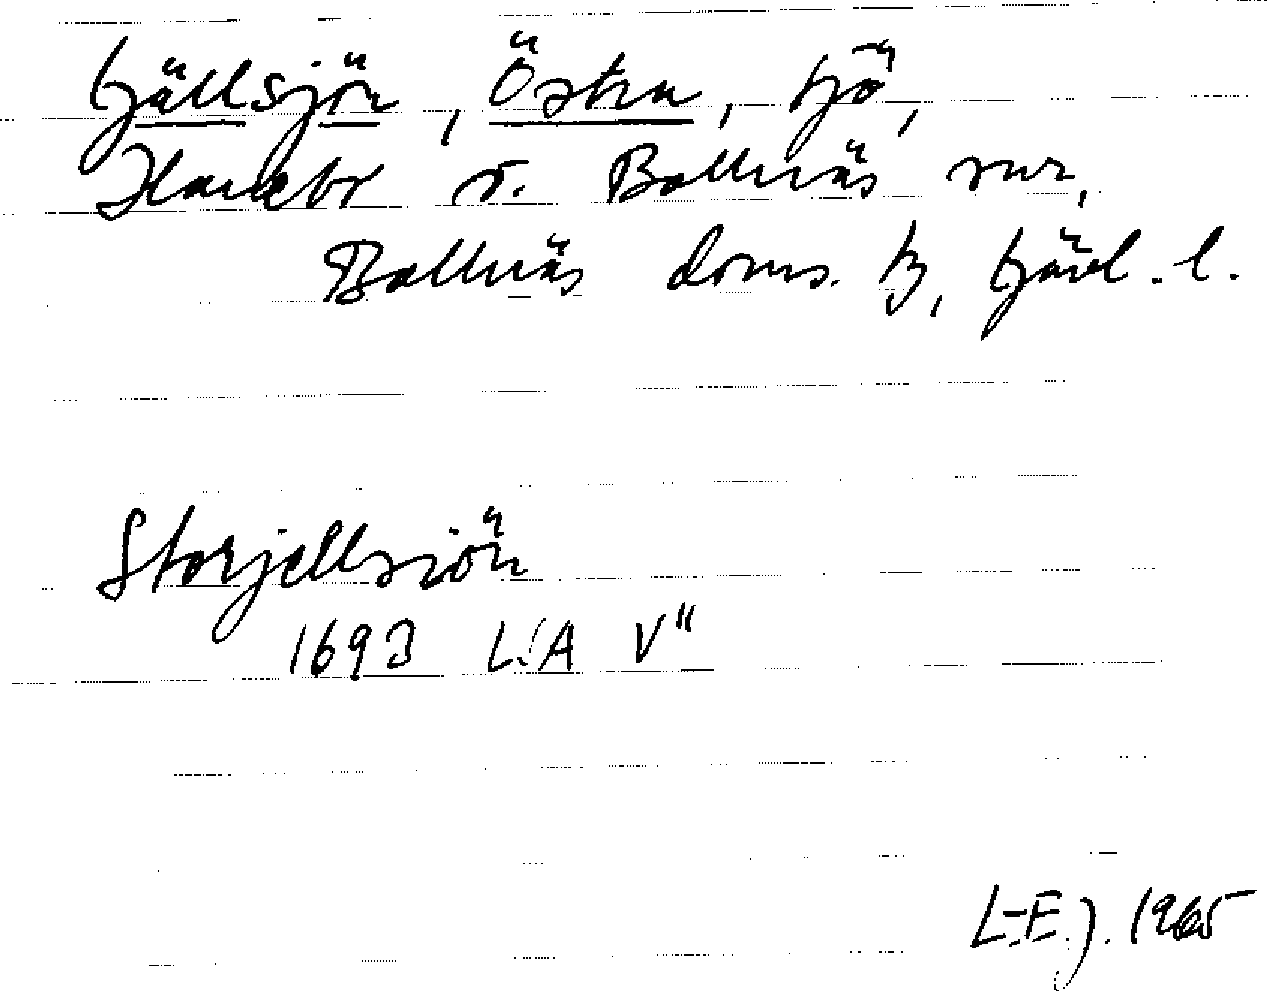 Gällsjön, Östra, sjö,
Hanebo o. Bollnäs snr,
Bollnäs doms. h., Gävl. l.
Storjellsiön
1693 LSA V"
L-E.J. 1965